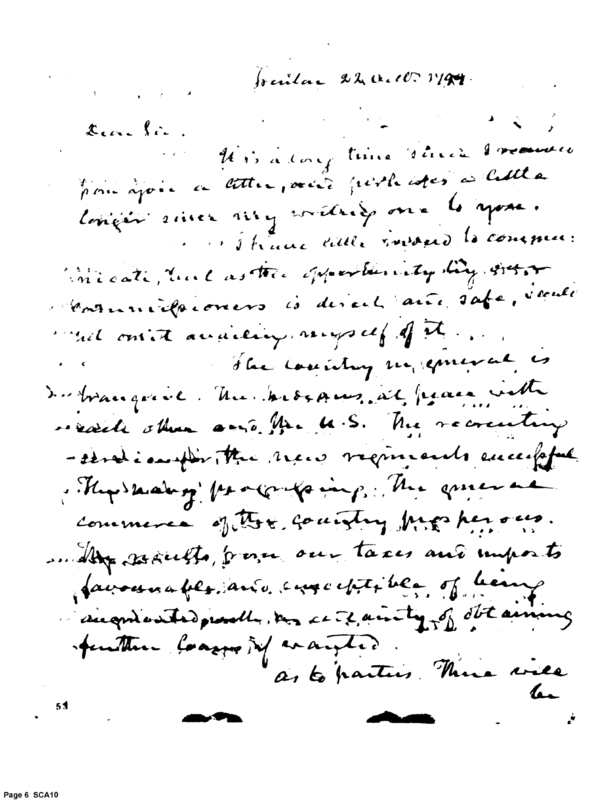 Trenton 22 Octo. 1799.
Dear Sir.
It is a long time since I received
from you a letter, and perhaps a little
longer since my writing one to you.
I have little indeed to commu:
nicate, but as the opportunity by our
commissioners is direct and safe, I could
not omit availing myself of it.
The country in general is
tranquil. The Indians at peace with
each other and the U.S. The recruiting
service for the new regiments successful
The navy progressing. The general
commerce of the country prosperous.
The results from our taxes and imports
favourable and susceptible of being
augmented with certainty of obtaining
further loans if wanted.
as to parties. There will
be
51
Page 6 SCA10